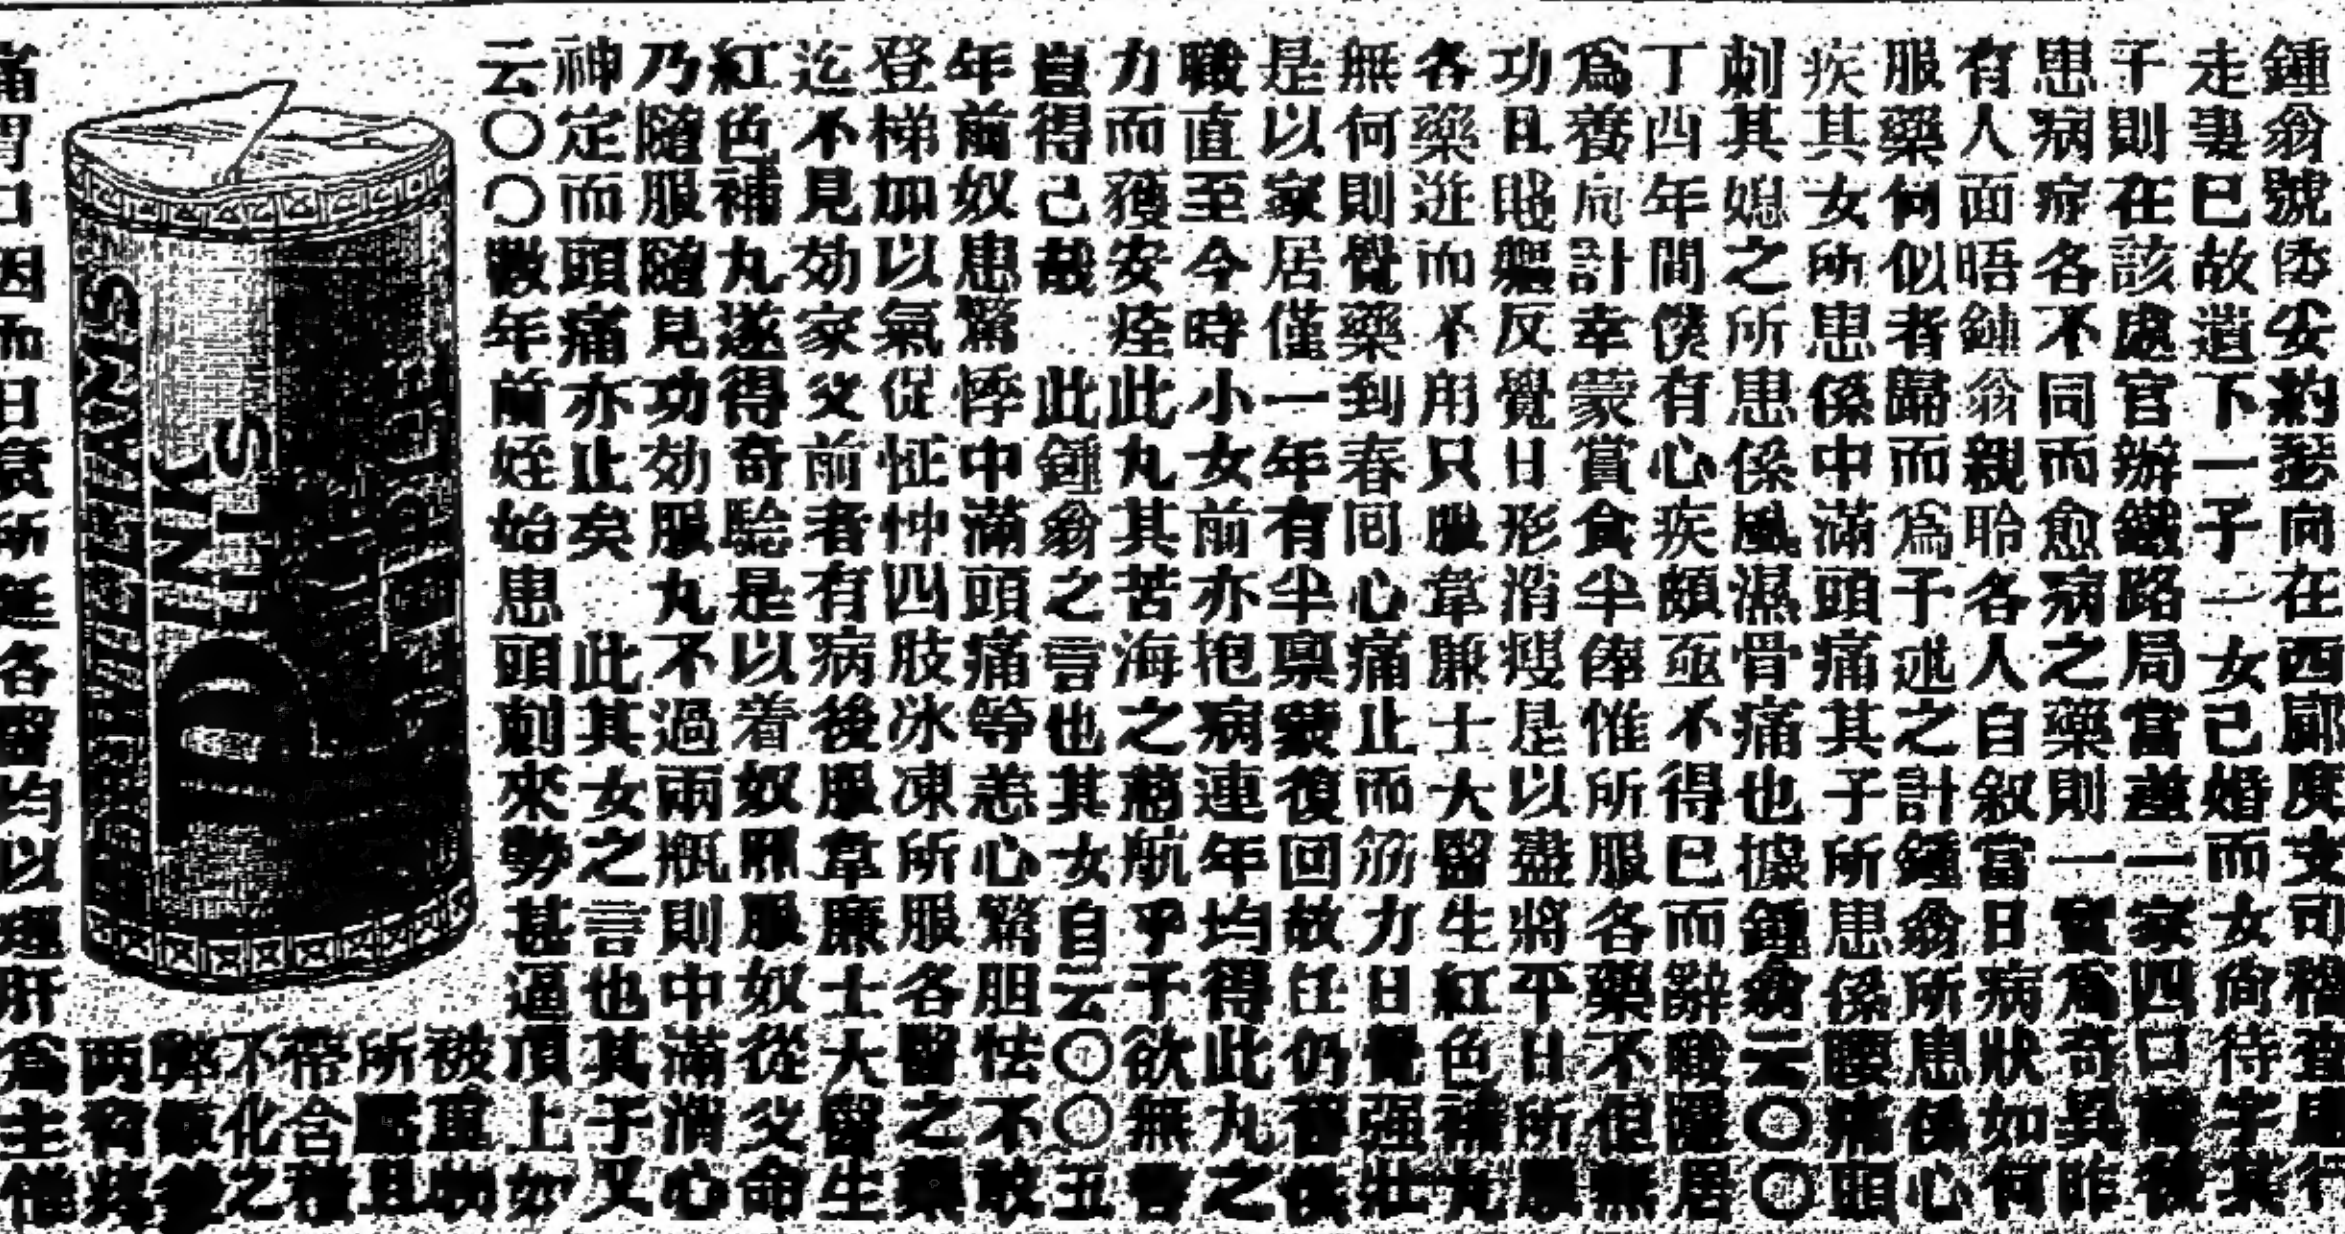 鍾翁號安豹瑟向在西鄺度支司稽查行
走妻已故遺下一子一女己婚而女尙待字其
子則在該處官辦鐵路局當差一家四口前被
患病症各不同而愈病之藥則一實爲奇異昨
有人面晤鍾翁親聆各人自叙當日病狀如何
服藥何似者歸而爲予述之計鍾翁所患係心
疾其女所患係中滿頭痛其子所患係腰痛頭
刺其媳之所患係風濕骨痛也據鍾翁云〇〇
丁酉年間僕有心疾頗亟不得已而辭職閒居
爲養疴計幸蒙賞食半俸惟所服各藥不但無
功且賤軀反覺日形消瘦是以盡將平日所服
各藥逬而不用只服韋廉士大醫生紅色補丸
無何則覺藥到春回心痛止而筋力日覺强壯
是以家居僅一年有半禀蒙復回故任仍舊供
職直至今時小女前亦抱病連年均得此丸之
力而獲安痊此丸其苦海之慈航乎予欲無言
豈得己哉　此鍾翁之言也其女自云〇〇五
年前奴患驚悸中滿頭痛等恙心驚胆怯不敢
登梯加以氣促怔忡四肢冰凍所服各醫之藥
迄不見効家父前者有病後服韋廉士大醫生
紅色補丸遂得奇騐是以着奴照服奴從父命
乃隨服隨見功効服丸不過兩瓶則中滿消心
神定而頭痛亦止矣　此其女之言也其子又
云〇〇數年前姪始患頭刺來勢甚逼頂上如
被重物
所壓且
帶含積
不化之
弊
兩
痛胃口因而日衰所延各醫均以理肝爲主惟
DR. WILLIAMS
PINK
PILLS